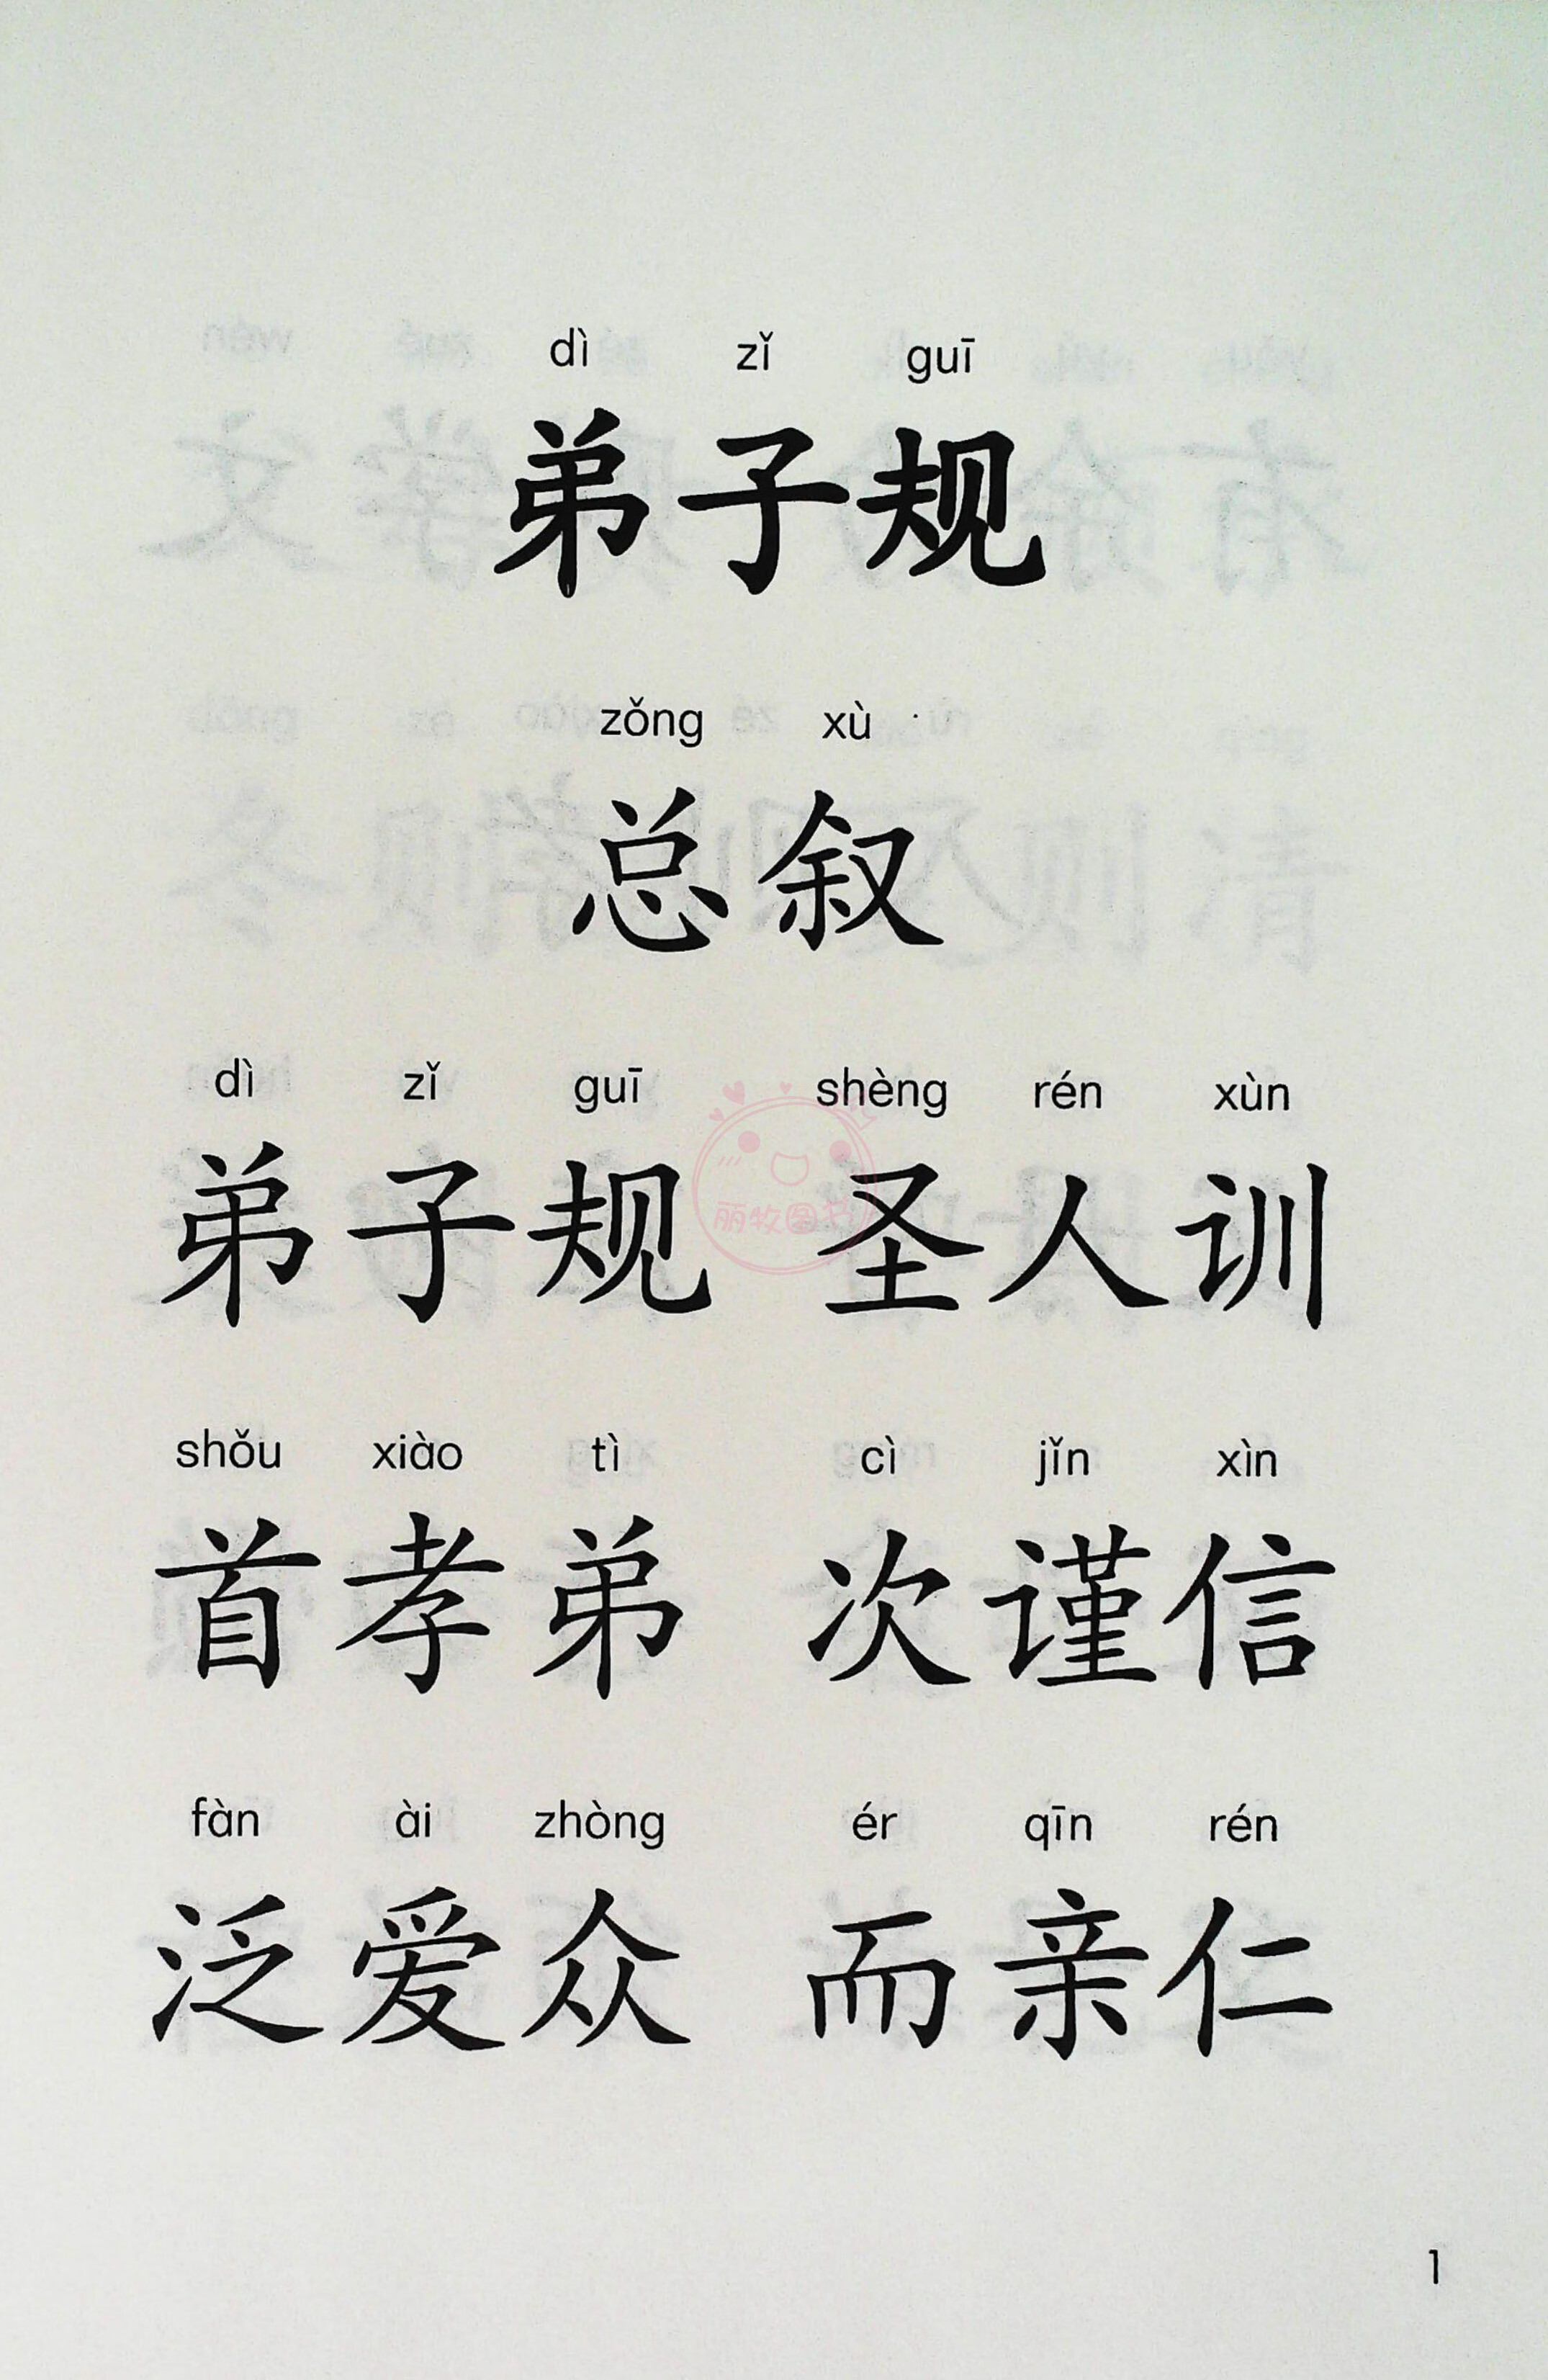 dì zǐ guī
弟子规
zǒng xù
总叙
dì zǐ guī shèng rén xùn
弟子规 圣人训
shǒu xiào tì cì jǐn xìn
首孝弟 次谨信
fàn ài zhòng ér qīn rén
泛爱众 而亲仁
丽牧图书
1